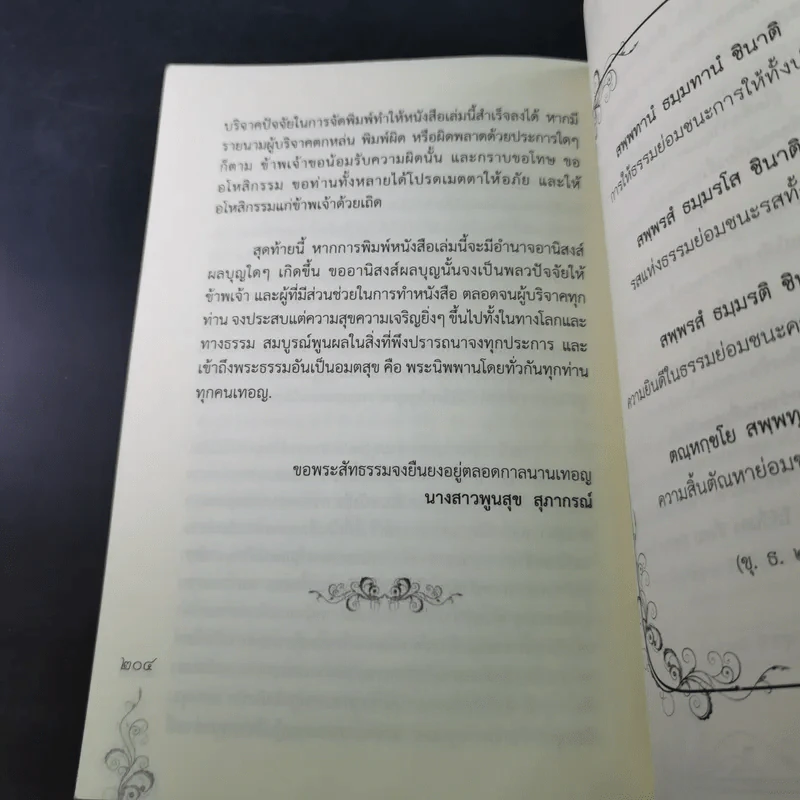 บริจาคปัจจัยในการจัดพิมพ์ทำให้หนังสือเล่มนี้สำเร็จลงได้ หากมี
รายนามผู้บริจาคตกหล่น พิมพ์ผิด หรือผิดพลาดด้วยประการใดๆ
ก็ตาม ข้าพเจ้าขอน้อมรับความผิดนั้น และกราบขอโทษ ขอ
อโหสิกรรม ขอท่านทั้งหลายได้โปรดเมตตาให้อภัย และให้
อโหสิกรรมแก่ข้าพเจ้าด้วยเถิด
สุดท้ายนี้ หากการพิมพ์หนังสือเล่มนี้จะมีอำนาจอานิสงส์
ผลบุญใดๆ เกิดขึ้น ขออานิสงส์ผลบุญนั้นจงเป็นพลวปัจจัยให้
ข้าพเจ้า และผู้ที่มีส่วนช่วยในการทำหนังสือ ตลอดจนผู้บริจาคทุก
ท่าน จงประสบแต่ความสุขความเจริญยิ่งๆ ขึ้นไปทั้งในทางโลกและ
ทางธรรม สมบูรณ์พูนผลในสิ่งที่พึงปรารถนาจงทุกประการ และ
เข้าถึงพระธรรมอันเป็นอมตสุข คือ พระนิพพานโดยทั่วกันทุกท่าน
ทุกคนเทอญ.
ขอพระสัทธรรมจงยืนยงอยู่ตลอดกาลนานเทอญ
นางสาวพูนสุข สุภากรณ์
๒๐๔
สพฺพทานํ ธมฺมทานํ ชินาติ
การให้ธรรมย่อมชนะการให้ทั้งป
สพฺพรสํ ธมฺมรโส ชินาติ
รสแห่งธรรมย่อมชนะรสทั้
สพฺพรสํ ธมฺมรติ ชิน
ความยินดีในธรรมย่อมชนะคว
ตณฺหกฺขโย สพฺพทุ
ความสิ้นตัณหาย่อมช
(ขุ. ธ. ๒